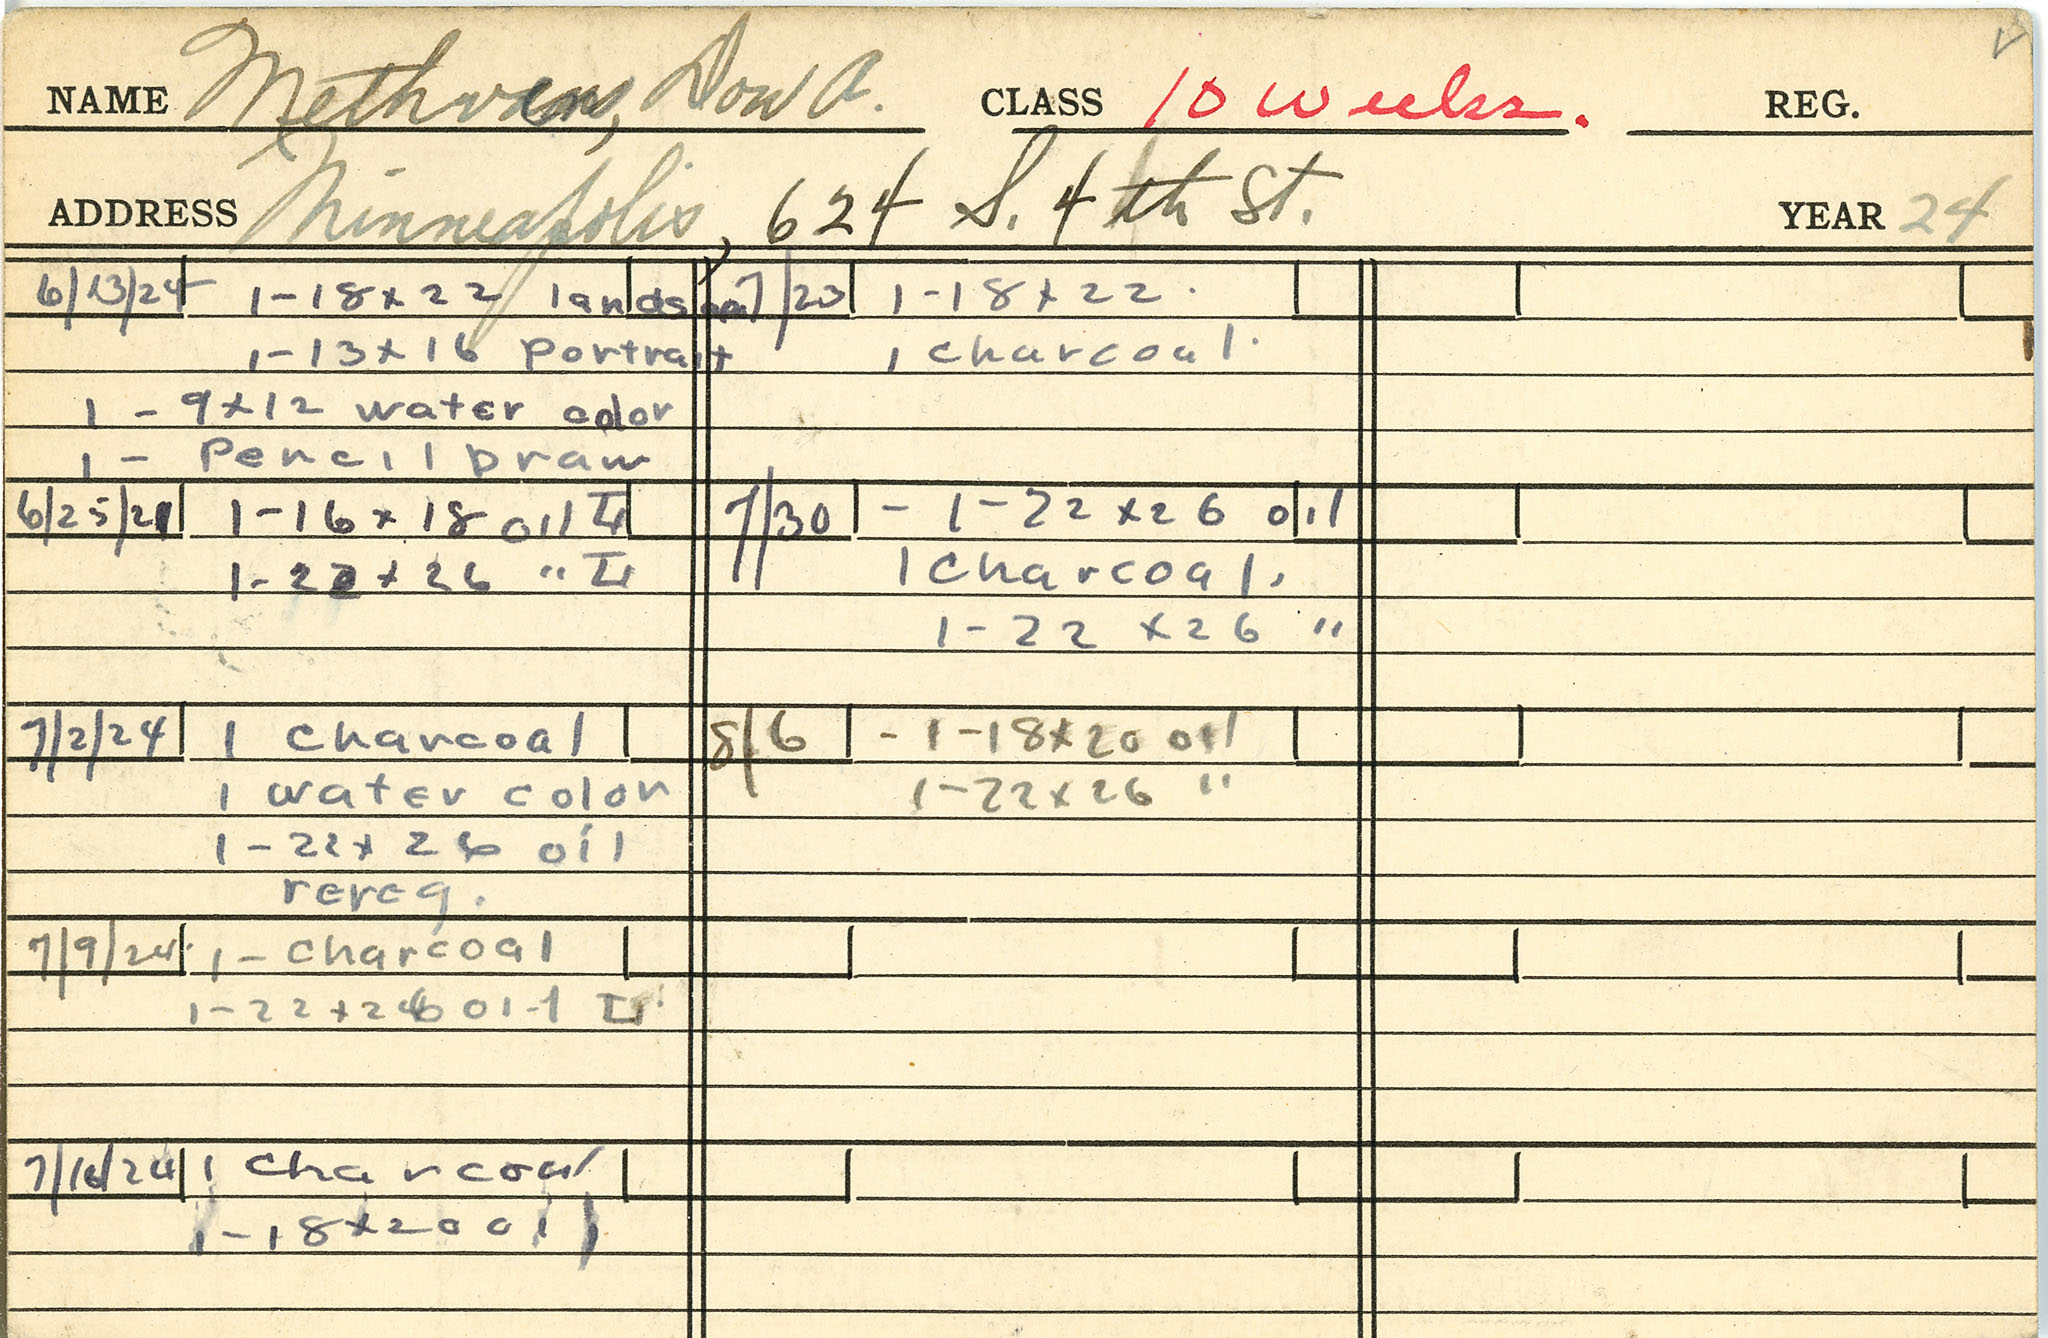 NAME Methven, Dow A. CLASS 10 weeks. REG.
ADDRESS Minneapolis, 624 S. 4th St. YEAR 24
6/13/24 1-18x22 landscap
1-13x16 portrait
1 - 9x12 water color
1 - Pencil Draw
6/25/24 1-16 x 18 oil L
1-22 x 26 " L
7/2/24 1 charcoal
1 water color
1-22x 26 oil
rereg.
7/9/24 1- charcoal
1-22x26 oil L
7/16/24 1 charcoal
1-18x20 oil
7/23 1-18x22.
1 charcoal.
7/30 - 1-22x26 oil
1 charcoal.
1-22 x26 "
8/6 - 1-18x20 oil
1-22x26 "